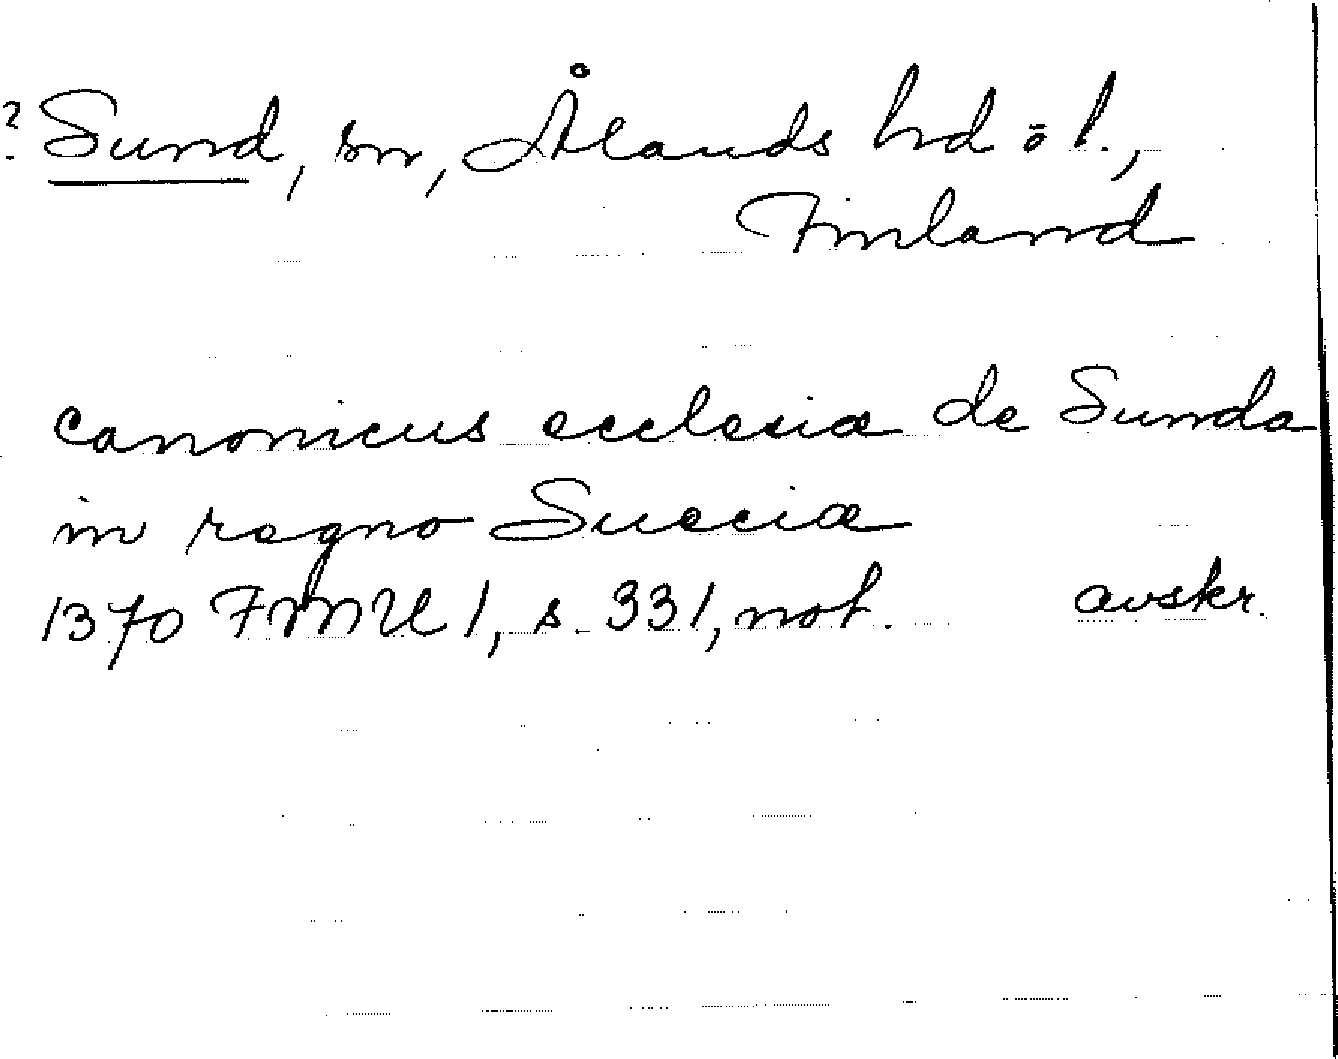 ? Sund, sn, Ålands hd o l.,
Finland
canonicus ecclesiæ de Sunda
in regno Sueciæ
1370 FMU 1, s. 331, not. avskr.